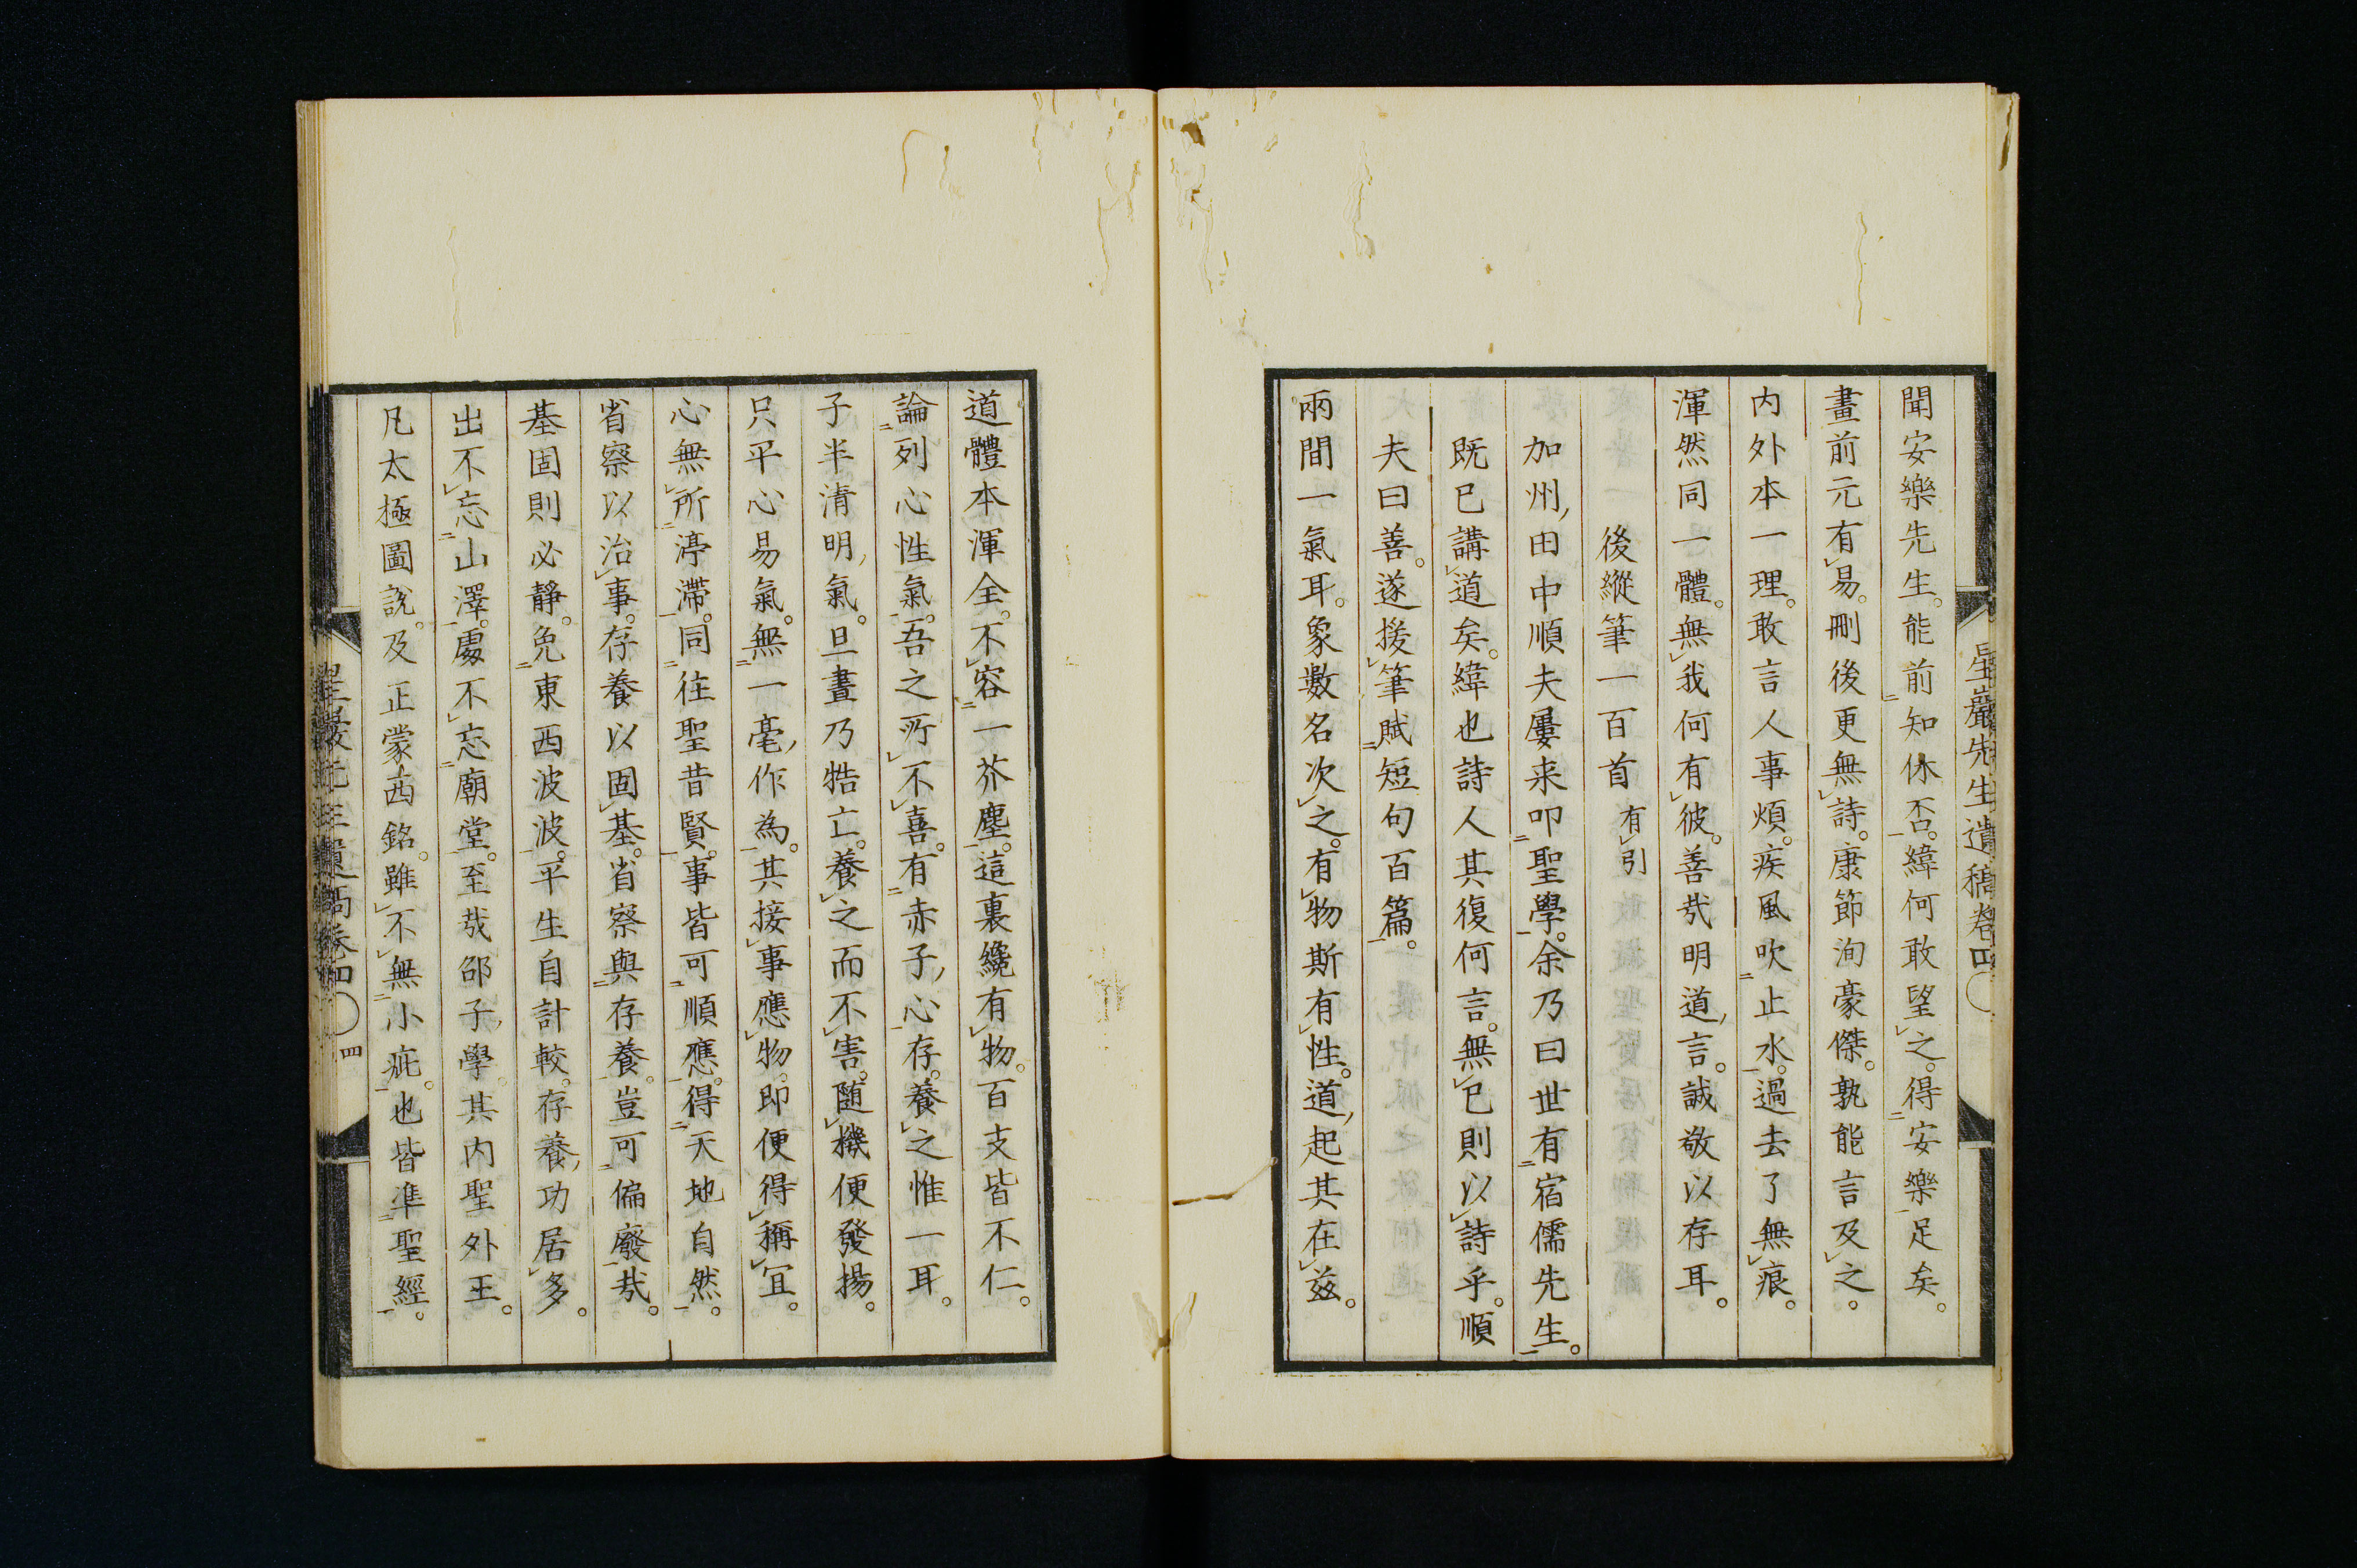 星巖先生遺稿卷四
聞安樂先生。能前知休否。緯何敢望之。得安樂足矣。
畫前元有易。刪後更無詩。康節洵豪傑。孰能言及之。
内外本一理。敢言人事煩。疾風吹止水。過去了無痕。
渾然同一體。無我何有彼。善哉明道言。誠敬以存耳。
後縱筆一百首 有引
加州田中順夫屢来叩聖學。余乃曰世有宿儒先生。
既已講道矣。緯也詩人其復何言。無已則以詩乎。順
夫曰善。遂援筆賦短句百篇。
兩間一氣耳。象數名次之。有物斯有性。道起其在茲。
道體本渾全。不容一芥塵。這裏纔有物。百支皆不仁。
論列心性氣。吾之所不喜。有赤子心存。養之惟一耳。
子半清明氣。旦晝乃牿亡。養之而不害。随機便發揚。
只平心易氣。無一毫作為。其接事應物。即便得稱宜。
心無所渟滯。同往聖昔賢。事皆可順應。得天地自然。
省察以治事。存養以固基。省察與存養。豈可偏廢哉。
基固則必静。免東西波波。平生自計較。存養功居多。
出不忘山澤。處不忘廟堂。至哉邵子學。其内聖外王。
凡太極圖説。及正蒙西銘。雖不無小疵。也皆準聖經。
星巖先生遺稿卷四 四